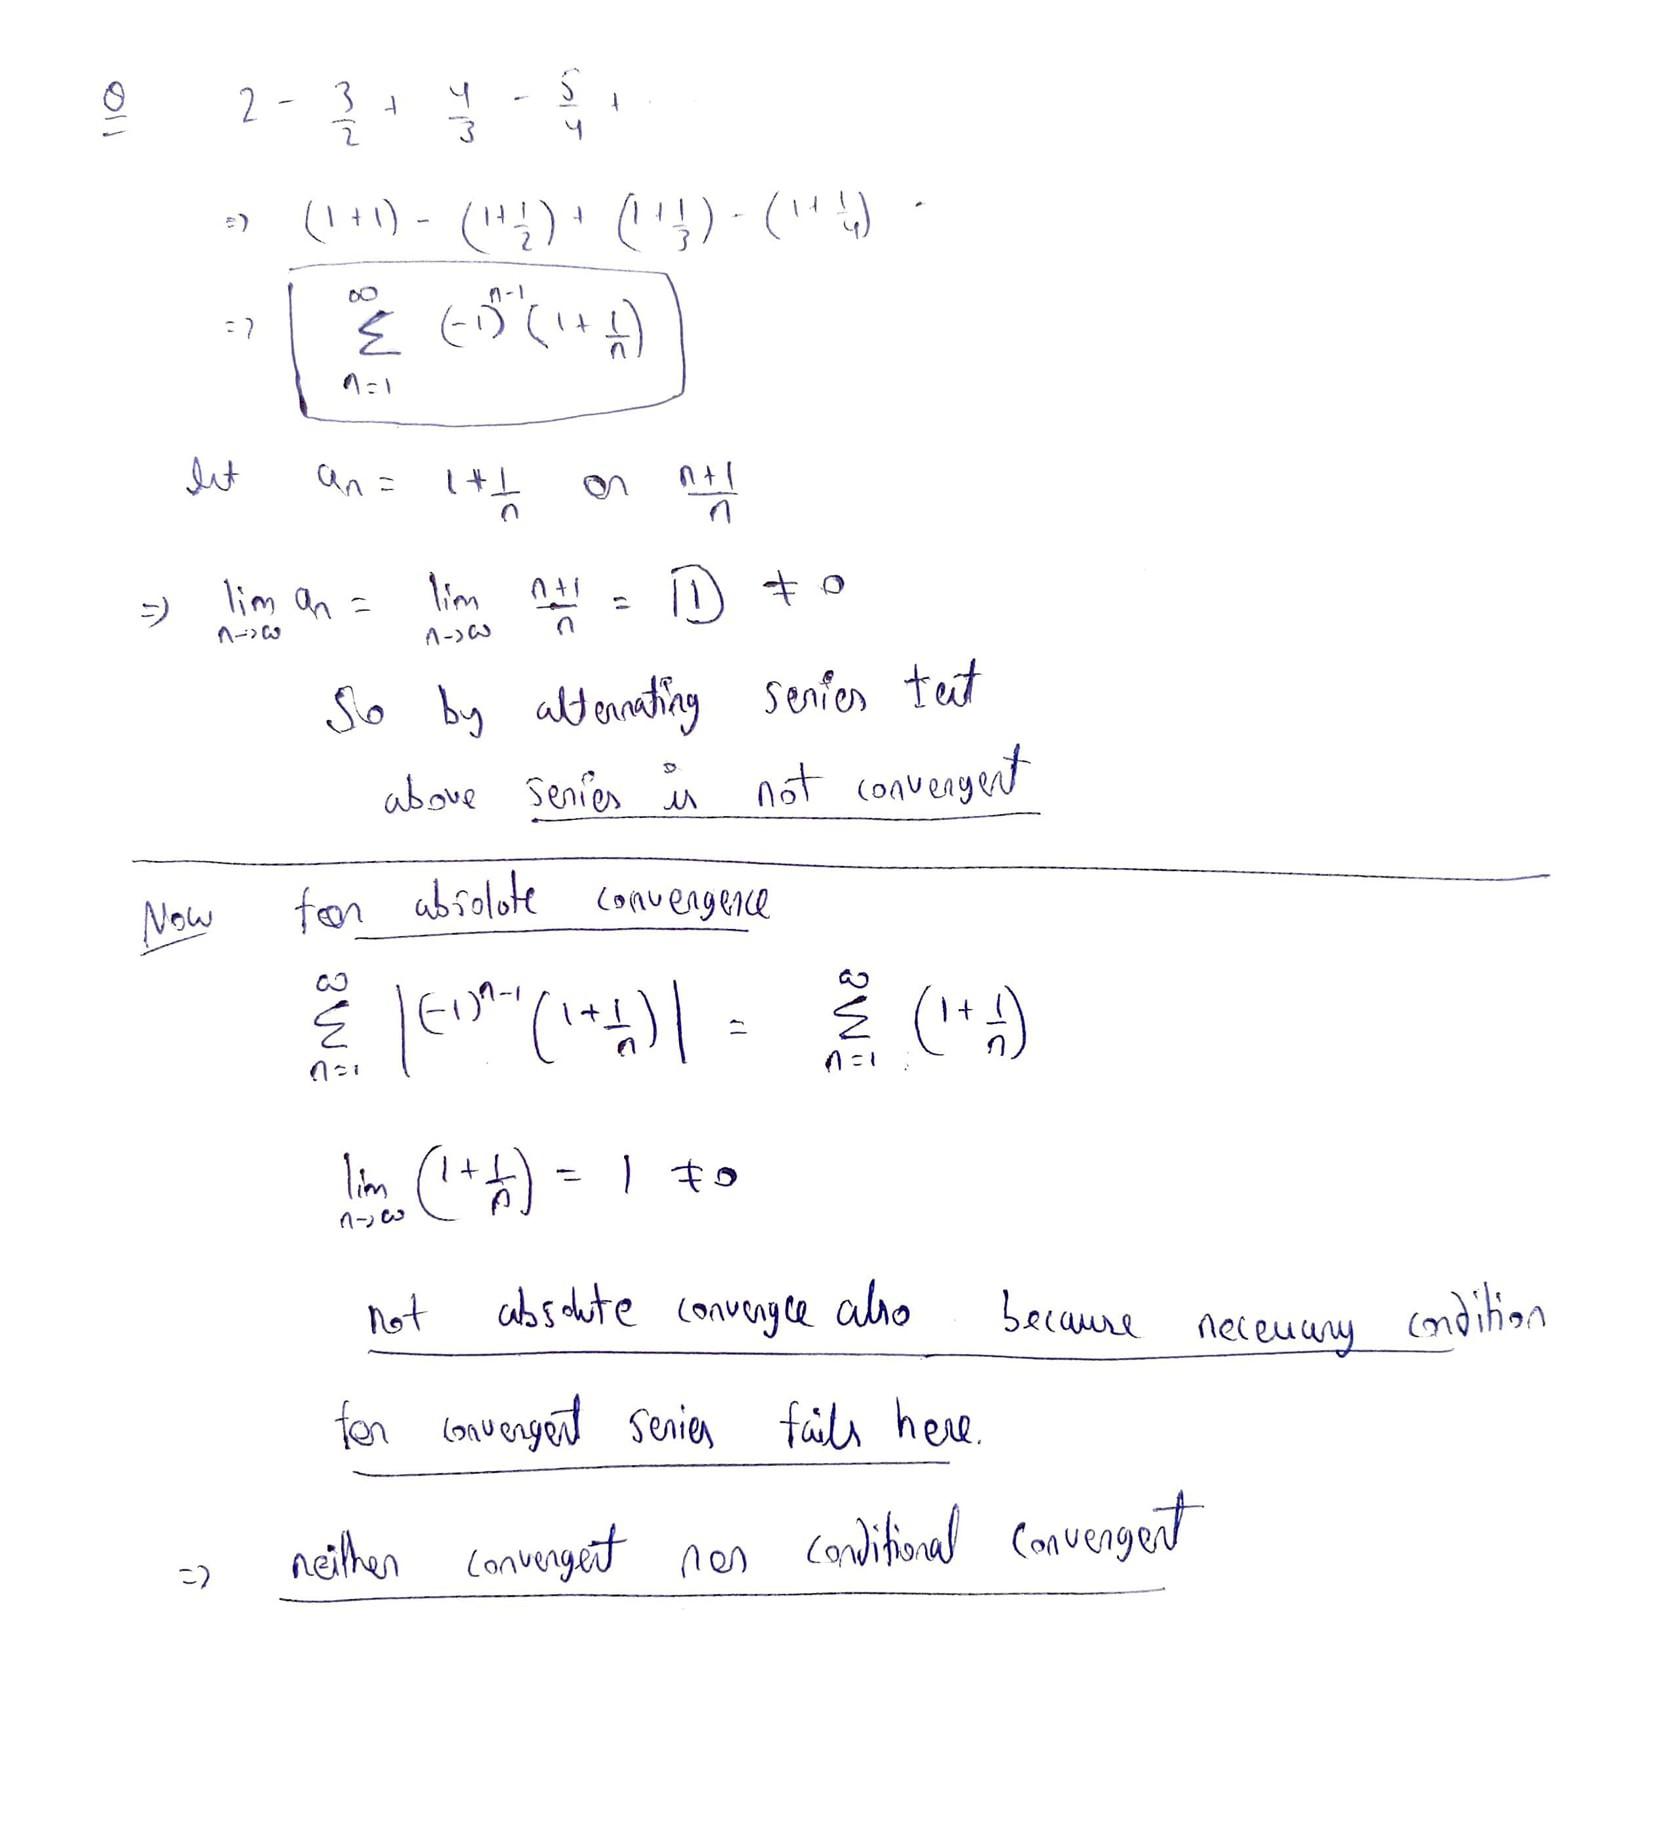 Q 2 - 3/2 + 4/3 - 5/4 + .
=> (1+1) - (1+1/2) + (1+1/3) - (1+1/4) .
=> ∞ Σ n=1 (-1)^{n-1} (1+1/n)
let an = 1+1/n or n+1/n
=> lim n->∞ an = lim n->∞ n+1/n = 1 ≠ 0
So by alternating series test
above series is not convergent
Now for absolote convergence
∞ Σ n=1 |(-1)^{n-1} (1+1/n)| = ∞ Σ n=1 (1+1/n)
lim n->∞ (1+1/n) = 1 ≠ 0
not absolute convergce also because necessary condition
for convergent series fails here.
=> neither convergent nor conditional convergent